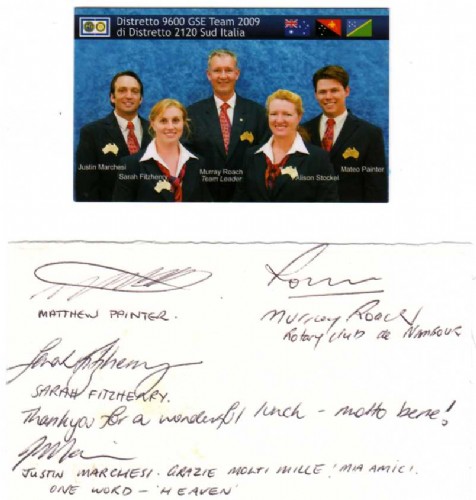 Distretto 9600 GSE Team 2009
di Distretto 2120 Sud Italia
Justin Marchesi
Sarah Fitzherry
Murray Roach
Team Leader
Alison Stockel
Mateo Painter
MATTHEW PAINTER.
Murray Roach
Rotary Club de Nambour
Sarah Fitzherry
SARAH FITZHERRY.
Thankyou for a wonderful lunch - molto bene!
JUSTIN MARCHESI. GRAZIE MOLTI MILLE! MIA AMICI.
ONE WORD - 'HEAVEN'